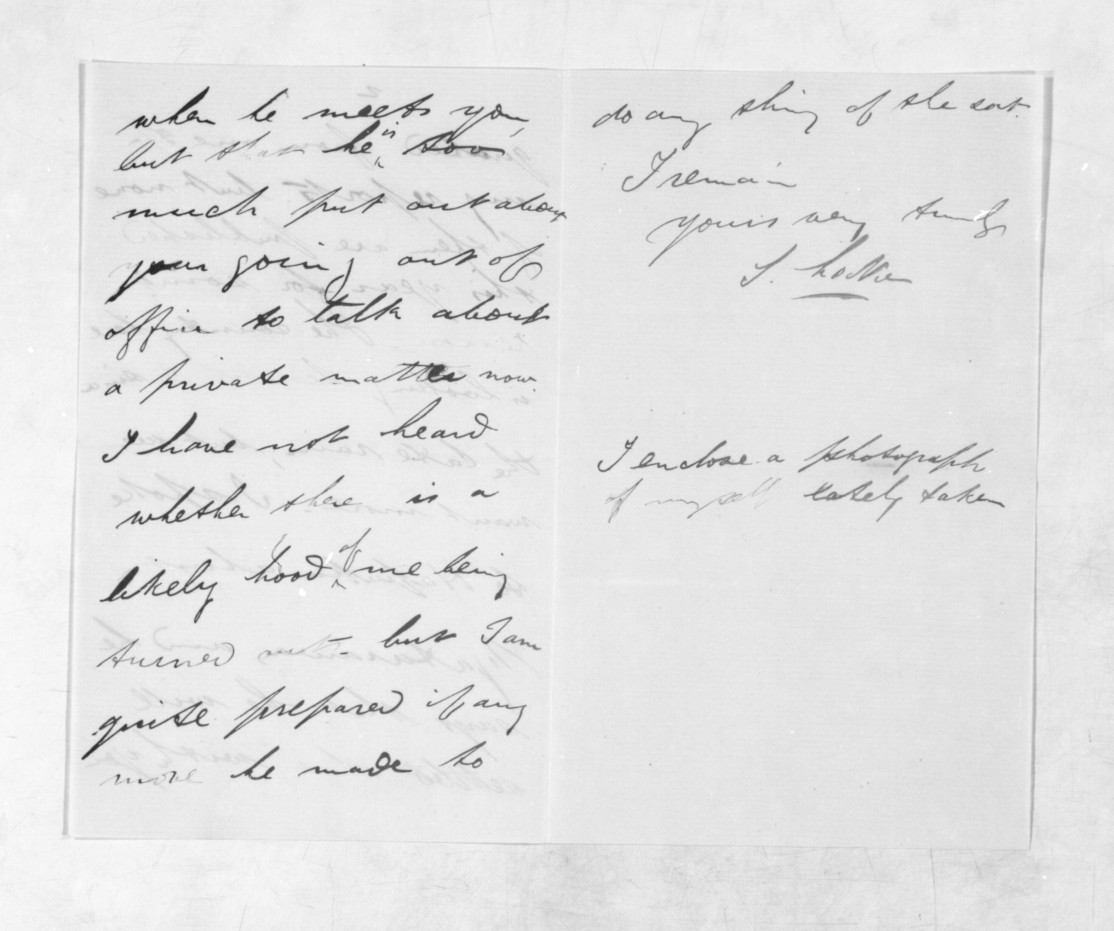 when he meets you,
but that he is too
much put out about
your going out of
office to talk about
a private matter now.
I have not heard
whether there is a
likely hood of me being
turned out - but I am
quite prepared if any
move be made to
do any thing of the sort.
I remain
yours very truly
S. Locke
I enclose a photograph
of myself lately taken